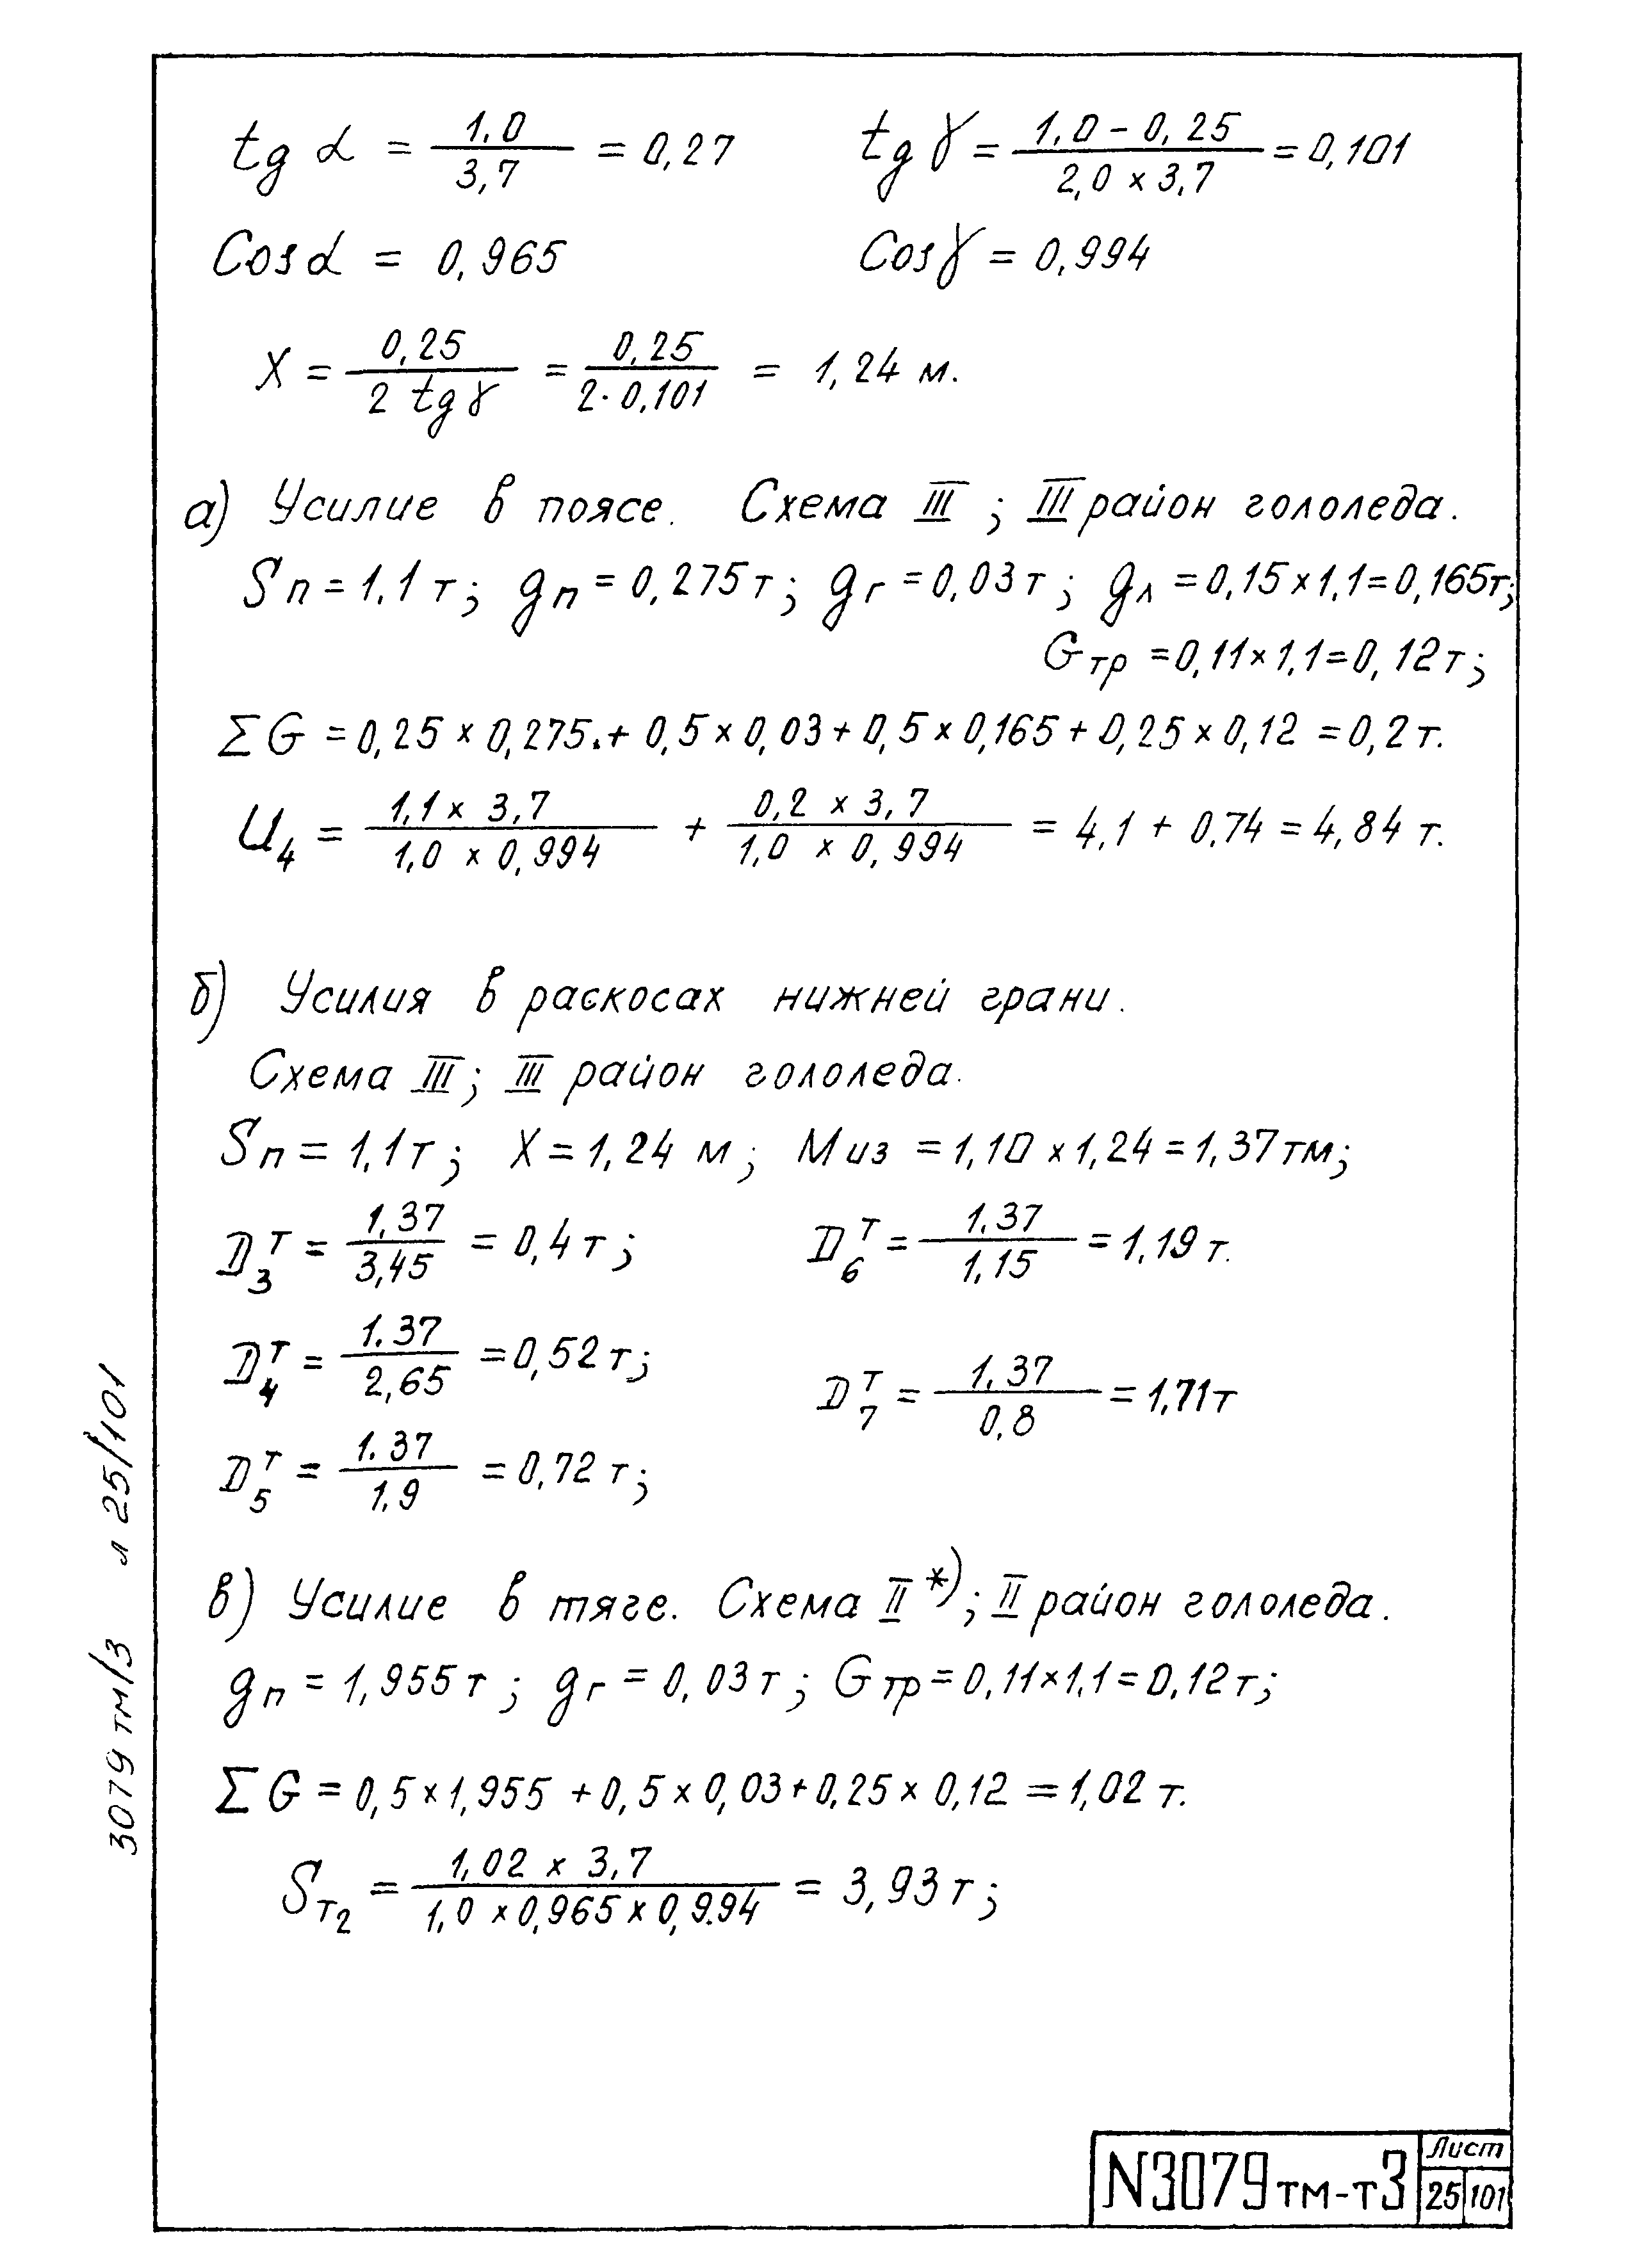 tg α = 1,0 / 3,7 = 0,27    tg γ = 1,0 - 0,25 / 2,0 × 3,7 = 0,101
Cos α = 0,965    Cos γ = 0,994
X = 0,25 / 2 tg γ = 0,25 / 2·0,101 = 1,24 м.
а) Усилие в поясе. Схема III; III район гололеда.
Sп = 1,1 т; gп = 0,275 т; gг = 0,03 т; gл = 0,15 × 1,1 = 0,165 т;
Gтр = 0,11 × 1,1 = 0,12 т;
ΣG = 0,25 × 0,275 + 0,5 × 0,03 + 0,5 × 0,165 + 0,25 × 0,12 = 0,2 т.
U₄ = 1,1 × 3,7 / 1,0 × 0,994 + 0,2 × 3,7 / 1,0 × 0,994 = 4,1 + 0,74 = 4,84 т.
б) Усилия в раскосах нижней грани.
Схема III; III район гололеда.
Sп = 1,1 т; X = 1,24 м; Mиз = 1,10 × 1,24 = 1,37 тм;
D₃ᵀ = 1,37 / 3,45 = 0,4 т;    D₆ᵀ = 1,37 / 1,15 = 1,19 т.
D₄ᵀ = 1,37 / 2,65 = 0,52 т;    D₇ᵀ = 1,37 / 0,8 = 1,71 т
D₅ᵀ = 1,37 / 1,9 = 0,72 т;
в) Усилие в тяге. Схема II*); II район гололеда.
gп = 1,955 т; gг = 0,03 т; Gтр = 0,11 × 1,1 = 0,12 т;
ΣG = 0,5 × 1,955 + 0,5 × 0,03 + 0,25 × 0,12 = 1,02 т.
Sт₂ = 1,02 × 3,7 / 1,0 × 0,965 × 0,994 = 3,93 т;
3079 тм/3 л 25/101
N3079тм-т3
Лист
25 101